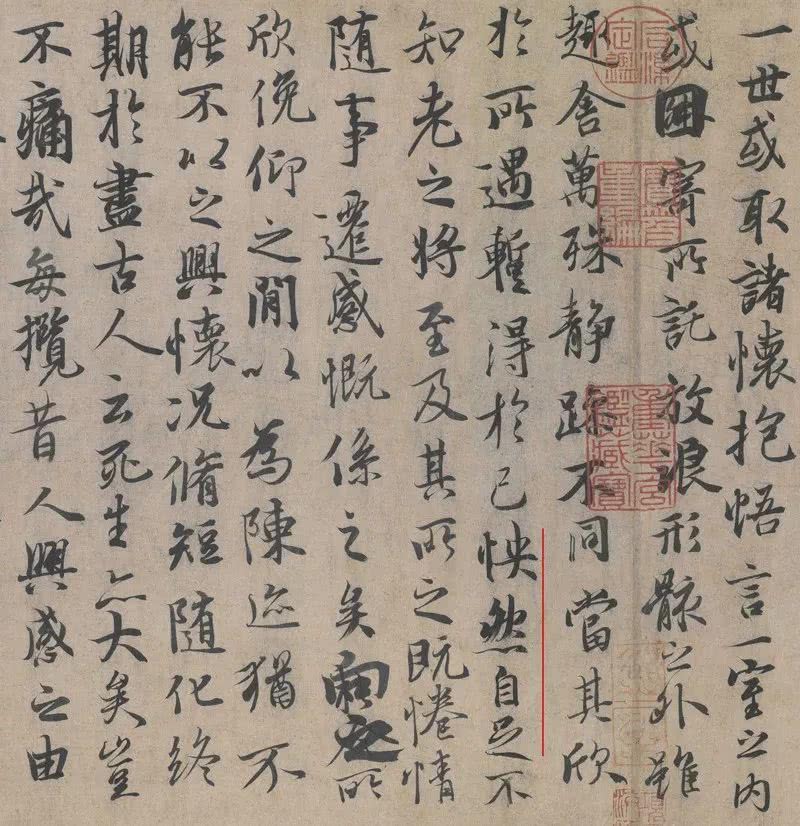 一世或取諸懷抱悟言一室之內
或因寄所託放浪形骸之外雖
趣舍萬殊静躁不同當其欣
於所遇蹔得於己怏然自足不
知老之將至及其所之既惓情
隨事遷感慨係之矣向之所
欣俛仰之閒以為陳迹猶不
能不以之興懷況脩短隨化終
期於盡古人云死生亦大矣豈
不痛哉每攬昔人興感之由
石渠定鑑
重華宮鑑藏寶